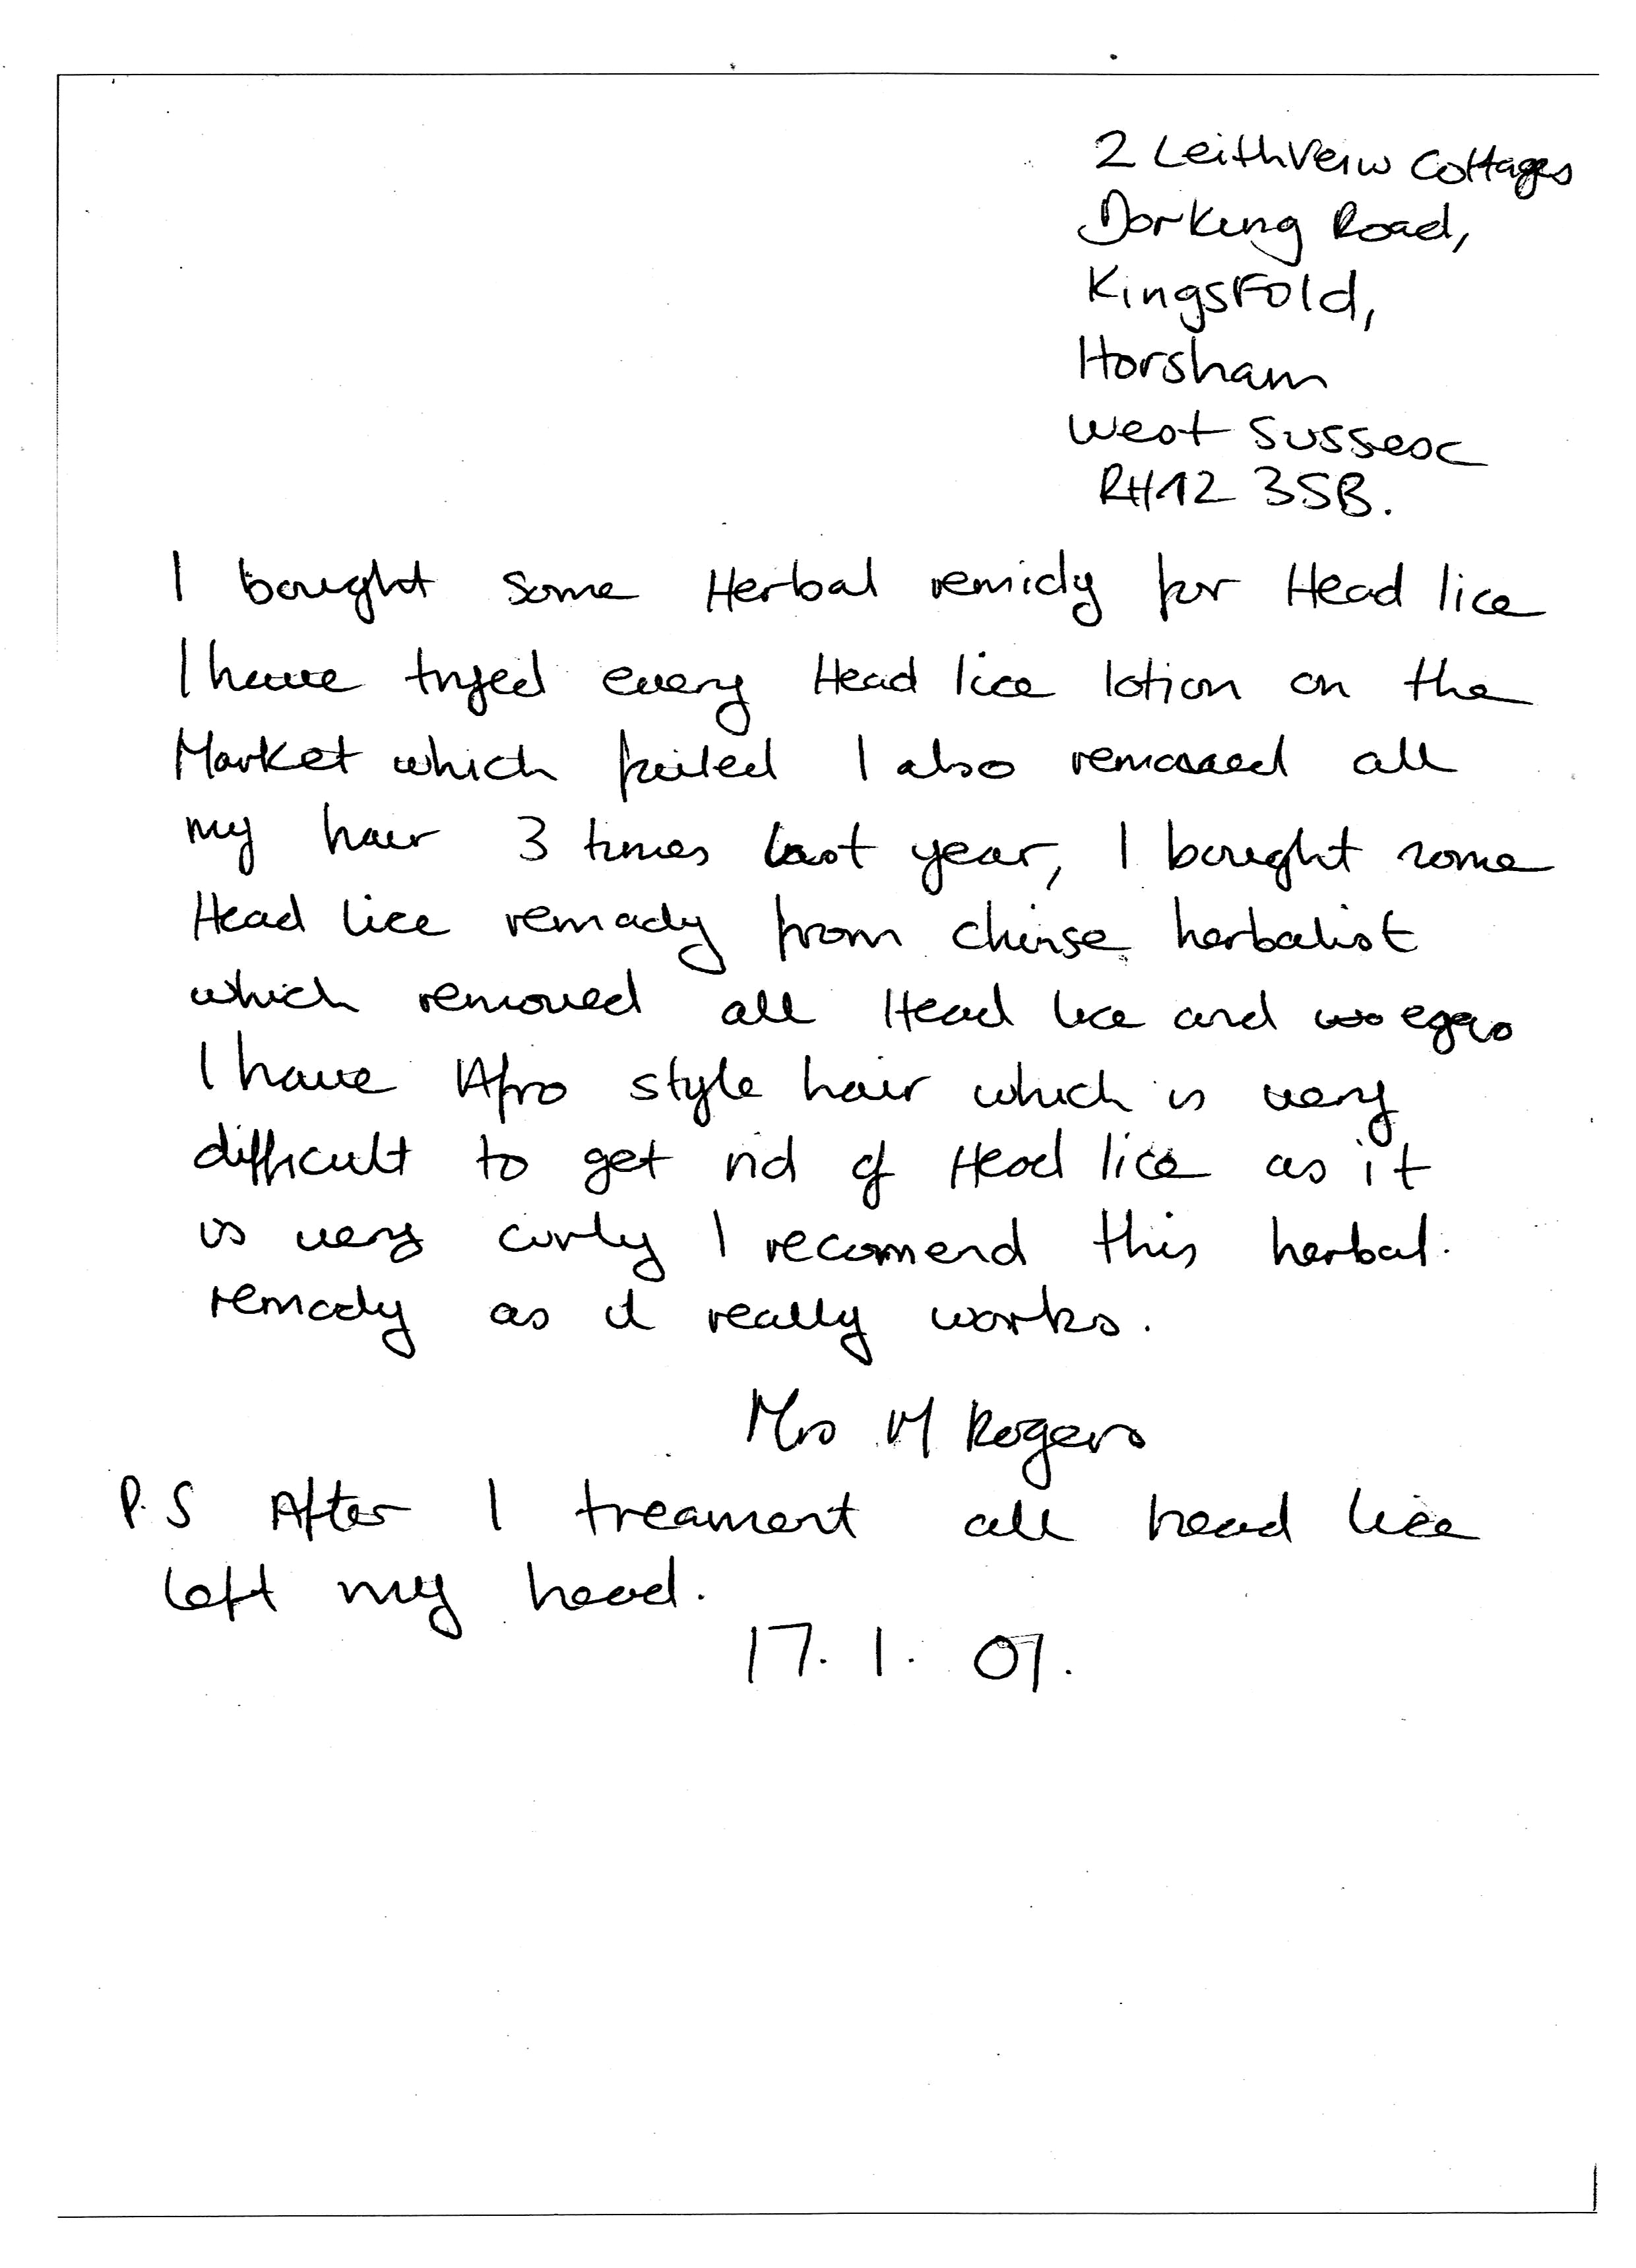 2 LeithVeiw Cottages
Dorking Road,
Kingsfold,
Horsham
West Sussex
RH12 3SB.
I bought some Herbal remidy for Head lice
I have tryed every Head lice lotion on the
Market which failed I also removed all
my hair 3 times last year, I bought some
Head lice remady from chinse herbalist
which removed all Head lice and eggs
I have Afro style hair which is very
difficult to get rid of Head lice as it
is very curly I recomend this herbal
remady as it really works.
Mrs M Rogers
P.S After 1 treament all head lice
left my head.
17. 1. 07.